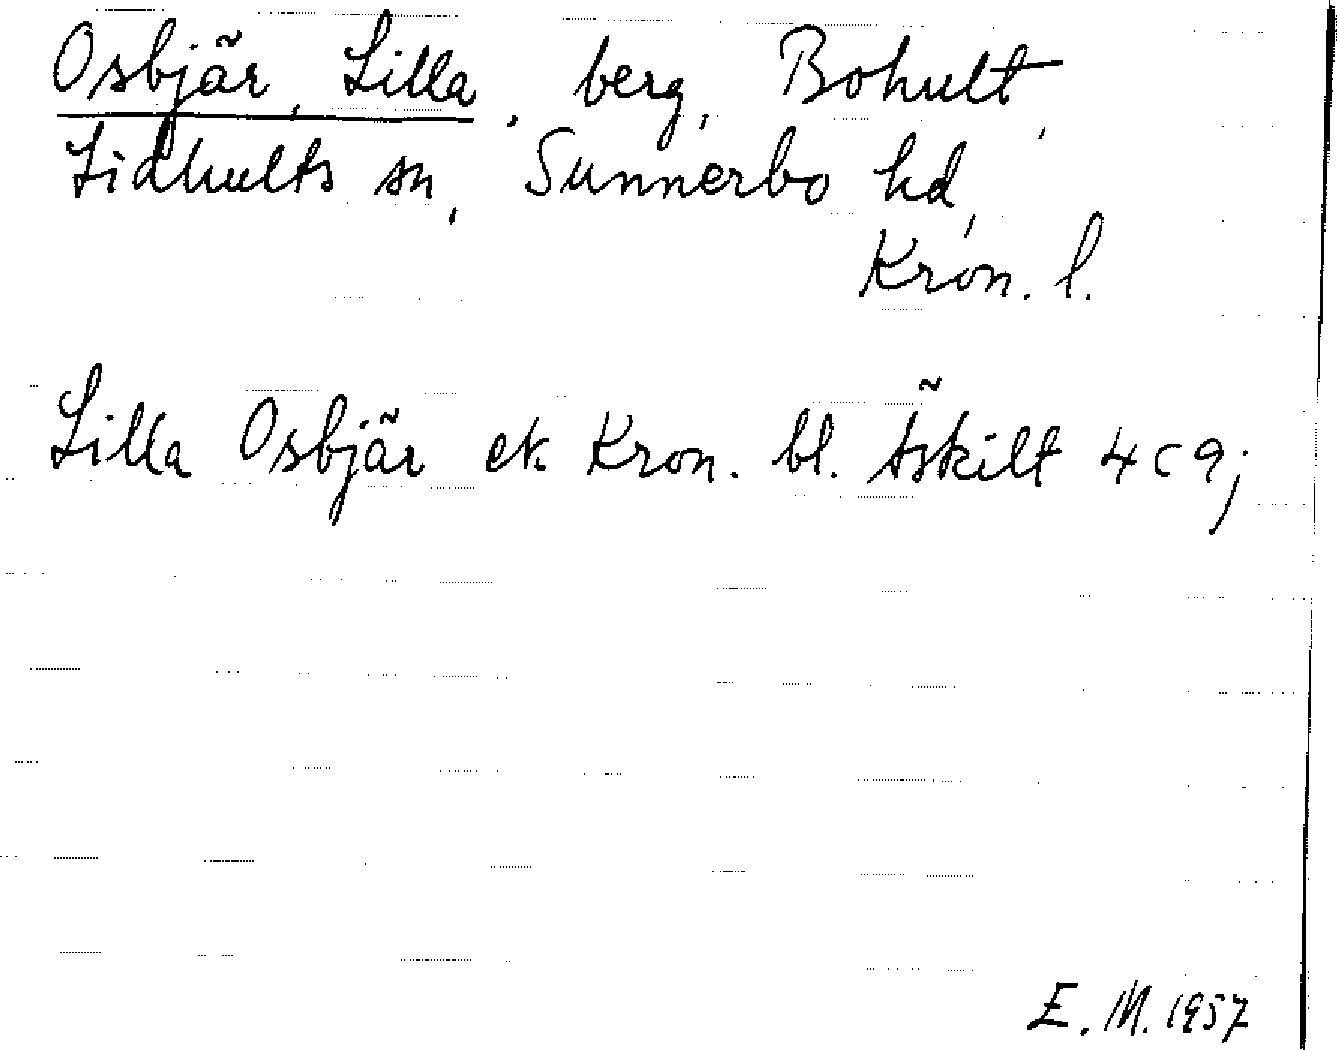 Osbjär, Lilla, berg, Bohult,
Lidhults sn, Sunnerbo hd,
Kron. l.
Lilla Osbjär ek. Kron. bl. Äskilt 4 c 9;
E. M. 1957